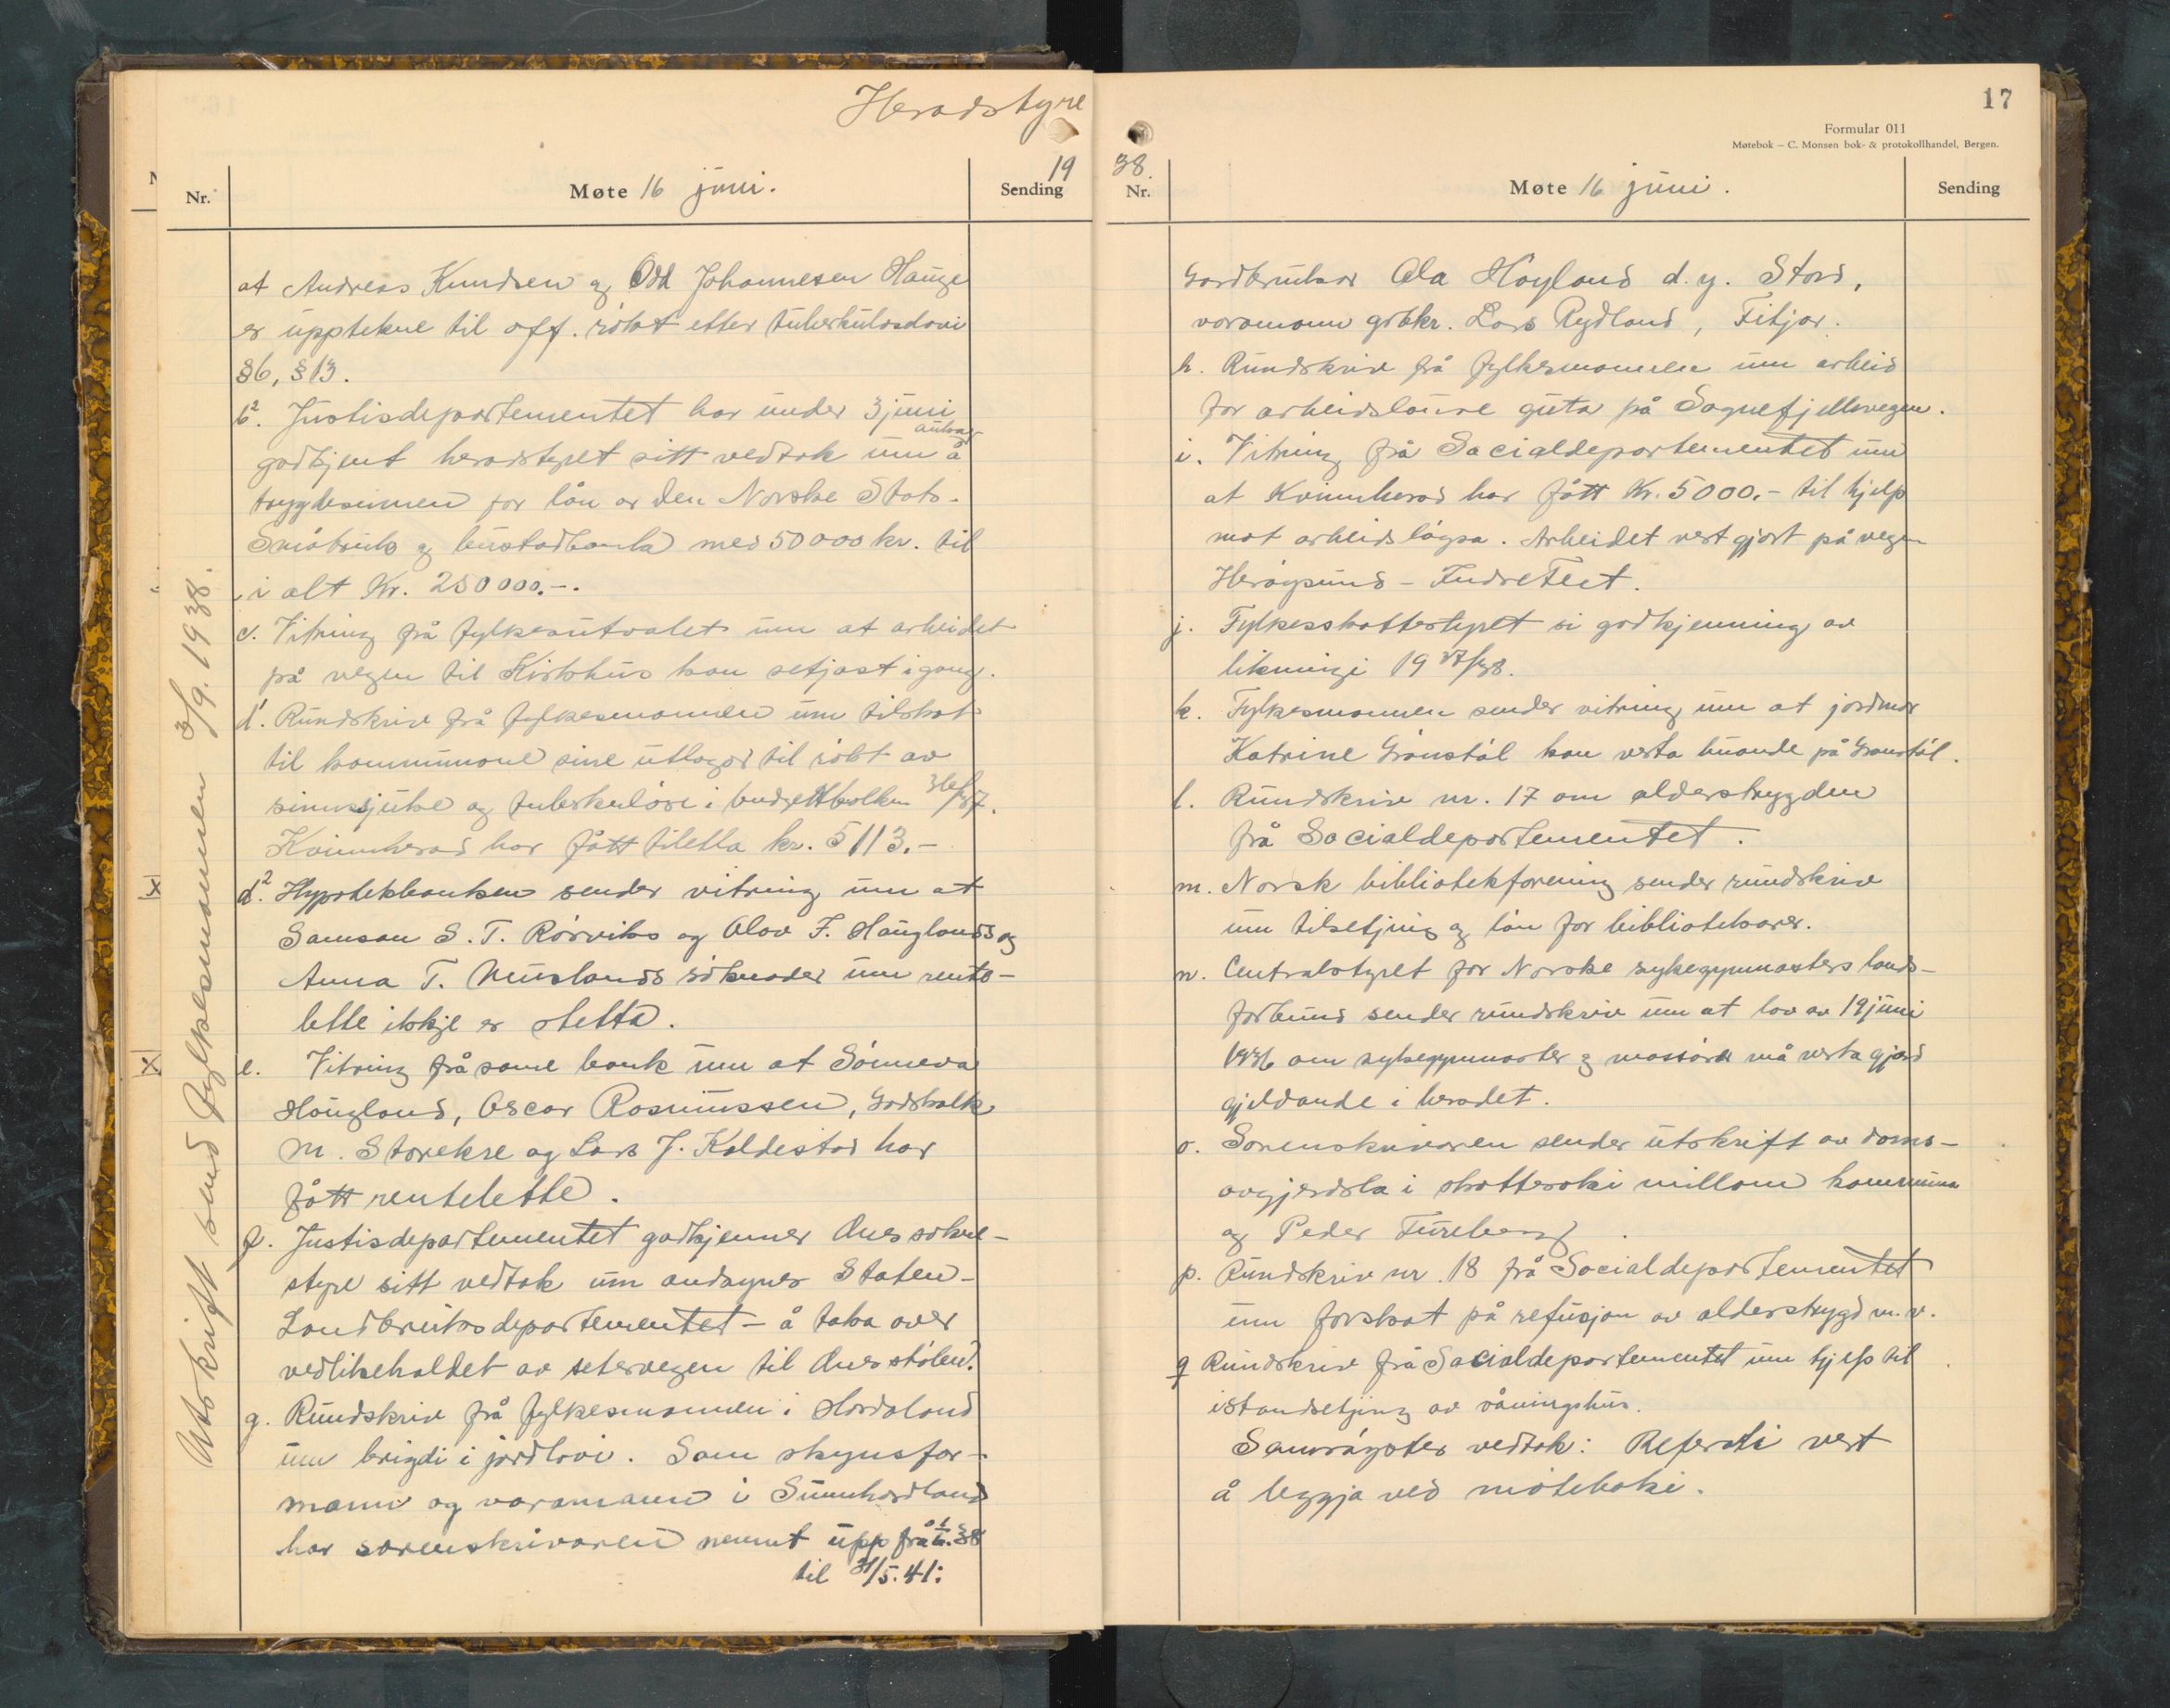 Heradstyre
19
Nr.
Møte 16 juni.
Sending
at Andreas Knudsen og Odd Johannesen Hauge
er upptekne til off. rökt etter tuberkuloselovi
§6, §13.
b². Justisdepartementet har under 3 juni
godkjent heradstyret sitt vedtak um å auka
trygdesumen for lån av den Norske Stats-
Småbruks og bustadbank med 50000 kr. til
i alt Kr. 250000.-.
c. Vitring frå fylkesutvalet um at arbeidet
på vegen til Kirkhus kan setjast igang.
d¹. Rundskriv frå fylkesmannen um tilskot
til kommunone sine utlogor til rökt av
sinnssjuke og tuberkulöse i budgettbolken 36/37.
Kvinnherad har fått tiletla kr. 5113.-
x
d². Hypotekbanken sender vitring um at
Samson S. T. Rörviks og Olav F. Hauglands og
Anna T. Muslands söknader um rente-
lette ikkje er stetta.
x
e. Vitring frå same bank um at Sönneva
Haugland, Oscar Rasmussen, Godskalk
M. Storekre og Lars J. Kaldestad har
fått rentelette.
f. Justisdepartementet godkjenner Ænes sokne-
styre sitt vedtak um andsynes Staten-
Landbruksdepartementet - å taka over
vedlikehaldet av setervegen til Ænesstölen.
g. Rundskriv frå fylkesmannen i Hordaland
um brigdi i jordlovi. Som skynsfor-
mann og varamann i Sunnhordland
har sorenskrivaren nemnt upp frå 1/6.38
til 31/5.41:
Utskrift send fylkesmannen 3/9.1938.
17
Formular 011
Møtebok – C. Monsen bok- & protokollhandel, Bergen.
38.
Nr.
Møte 16 juni.
Sending
Gardbrukar Ola Höyland d.y. Stord,
varamann gdbkr. Lars Rydland, Fitjar.
h. Rundskriv frå fylkesmannen um arbeid
for arbeidslause gutar på Sognefjellsvegen.
i. Vitring frå Socialdepartementet um
at Kvinnherad har fått Kr. 5000.- til hjelp
mot arbeidslöysa. Arbeidet vert gjort på vegen
Heröysund - IndreTeit.
j. Fylkesskattestyret si godkjenning av
likningi 19 37/38.
k. Fylkesmannen sender vitring um at jordmor
Katrine Grönstöl kan verta buande på Grönstöl.
l. Rundskriv nr. 17 om alderstrygden
frå Socialdepartementet.
m. Norsk bibliotekforening sender rundskriv
um tilsetjing og lön for bibliotekarer.
n. Centralstyret for Norske sykegymnasters lands-
forbund sender rundskriv um at lov av 19 juni
1936 om sykegymnaster og massörer må verta gjord
gjeldande i heradet.
o. Sorenskrivaren sender utskrift av doms-
avgjerdsla i skattesaki millom kommuna
og Peder Tureberg.
p. Rundskriv nr. 18 frå Socialdepartementet
um forskot på refusjon av alderstrygd m.v.
q Rundskriv frå Socialdepartementet um hjelp til
istandsetjing av våningshus.
Samröystes vedtak: Referati vert
å leggja ved möteboki.